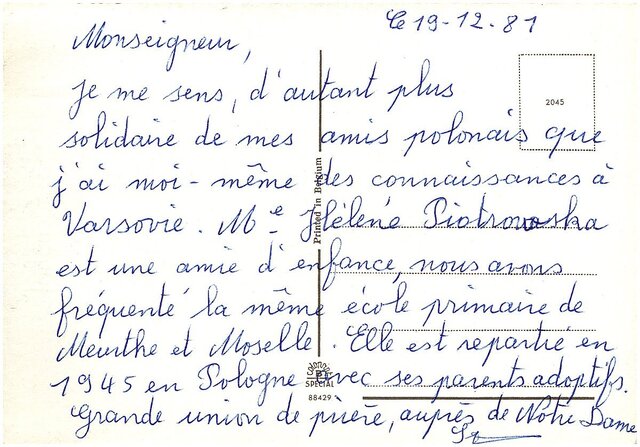 Le 19-12-81
Monseigneur,
2045
Je me sens, d'autant plus
solidaire de mes amis polonais que
j'ai moi-même des connaissances à
Varsovie. Me Hélène Piotrowska
est une amie d'enfance, nous avons
fréquenté la même école primaire de
Meurthe et Moselle. Elle est repartie en
1945 en Pologne avec ses parents adoptifs.
Grande union de prière, auprès de Notre Dame
Printed in Belgium
SPECIAL
88429